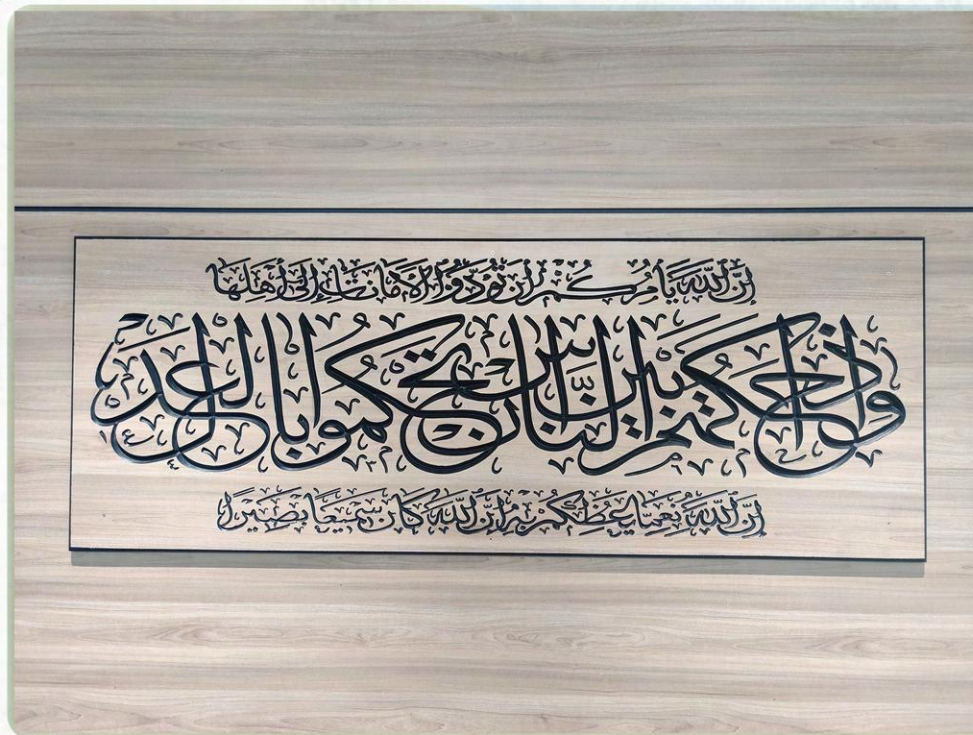 إن الله يأمركم أن تؤدوا الأمانات إلى أهلها
وإذا حكمتم بين الناس أن تحكموا بالعدل
إن الله نعما يعظكم به إن الله كان سميعا بصيرا